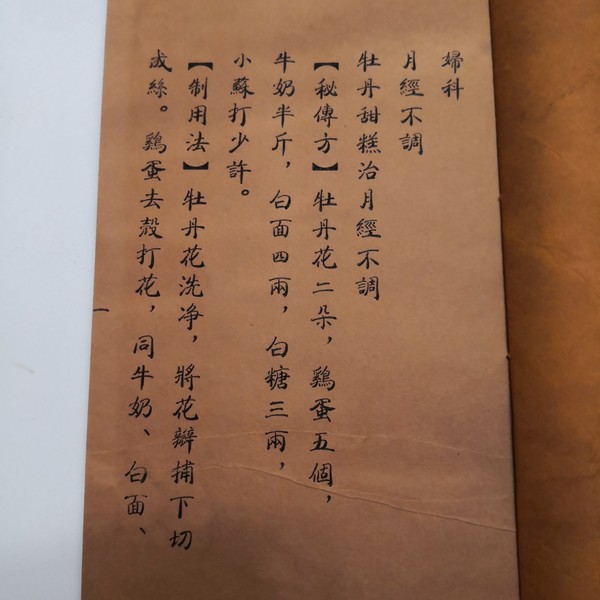 婦科
月經不調
牡丹甜糕治月經不調
【秘傳方】牡丹花二朵，鷄蛋五個，
牛奶半斤，白面四兩，白糖三兩，
小蘇打少許。
【制用法】牡丹花洗净，將花瓣捕下切
成絲。鷄蛋去殼打花，同牛奶、白面、
一